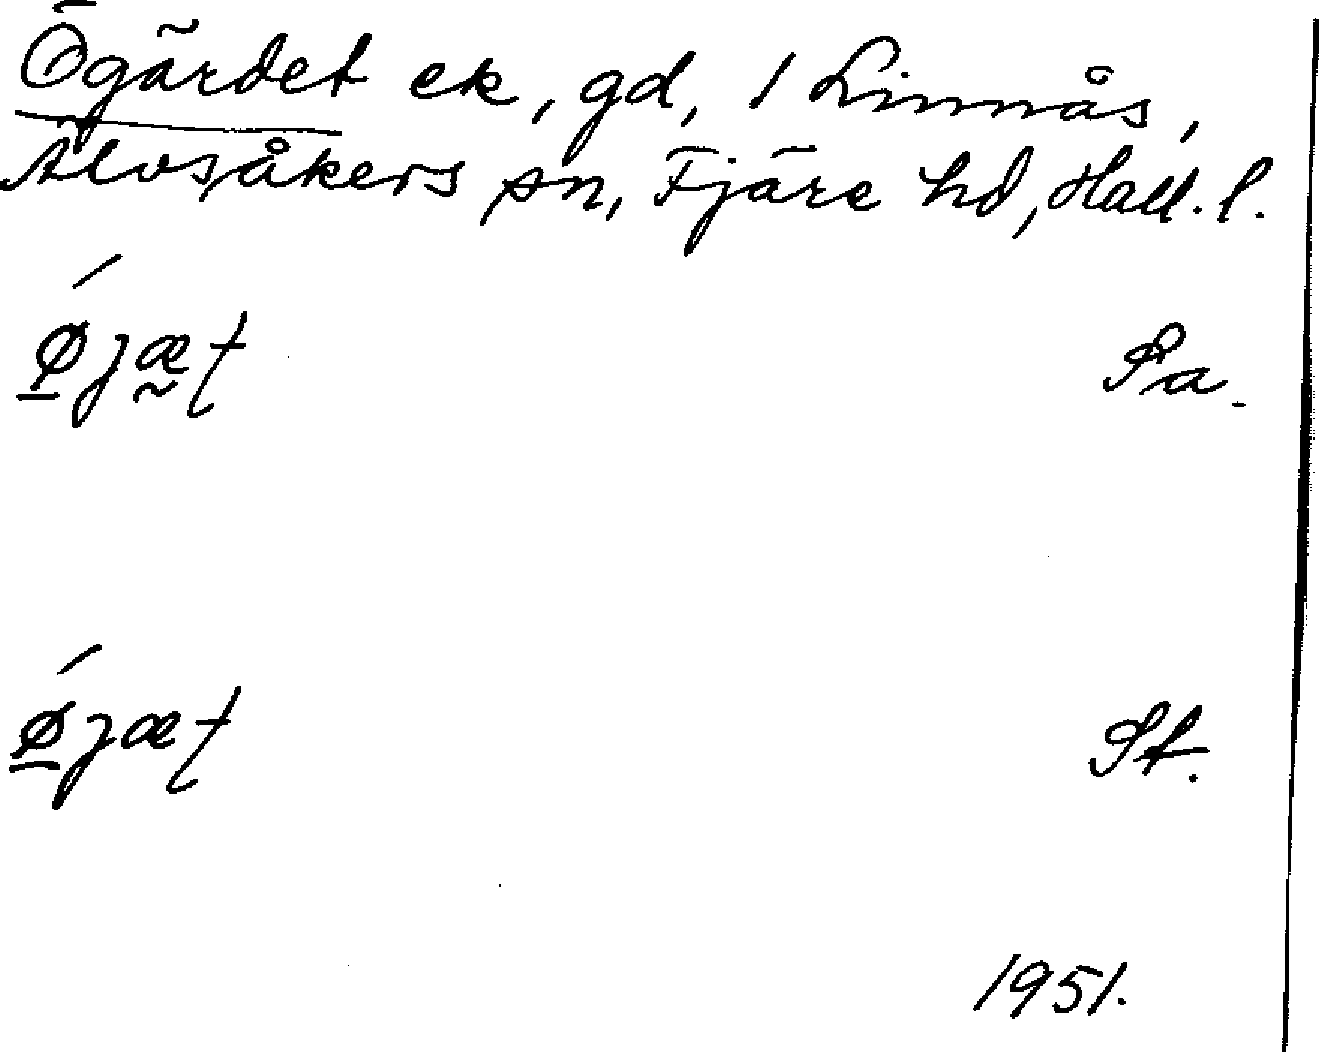 Ögärdet ek, gd, 1 Linnås,
Älvsåkers sn, Fjäre hd, Hall. l.
Øjæt Pa.
Øjæt St.
1951.